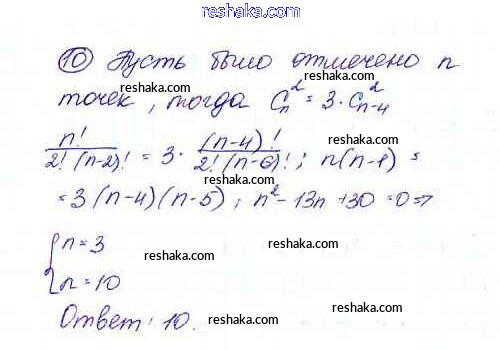 reshaka.com
10 Пусть было отмечено n
reshaka.com
точек, тогда C_n^2 = 3 · C_{n-4}^2
n! / 2!(n-2)! = 3 · (n-4)! / 2!(n-6)! ; n(n-1) =
reshaka.com reshaka.com
= 3(n-4)(n-5); n² - 13n + 30 = 0 =>
n = 3
reshaka.com
n = 10
reshaka.com
Ответ: 10.
reshaka.com
reshaka.com